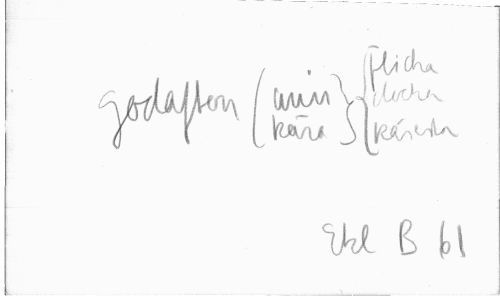 flicka
godafton (min } docka
kära käresta
Ekl B 61